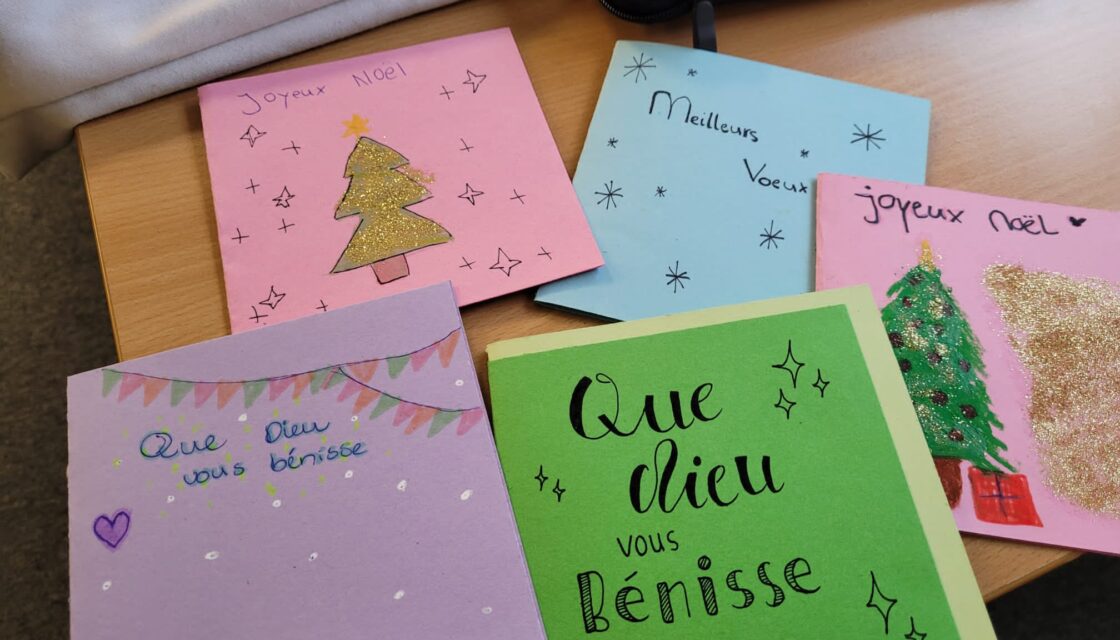 Joyeux Noël
Meilleurs
Voeux
joyeux Noël
Que Dieu
vous bénisse
Que
dieu
vous
Bénisse